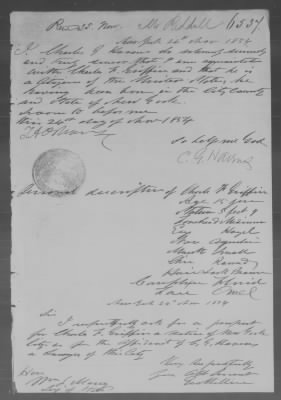 Recd 25. Nov.
1537
New York 24th Nov 1854
I Charles G Havens do solemnly sincerely
and truly swear that I am acquainted
with Charles F Griffin and that he is
a citizen of the United States, he
having been born in the City County
and State of New York
Sworn to before me
this 24th day of Nov 1854
So help me God
C. G. Havens
Personal description of Charles F Griffin
Age 18 years
Stature 5 feet 9
Forehead Medium
Eyes Hazel
Nose Aquiline
Mouth Small
Chin Round
Hair Dark Brown
Complexion Florid
Face
New York 24 Nov 1854
Sir
I respectfully ask for a passport
for Charles F. Griffin a native of New York
City as per the affidavit of C. G. Havens
a Lawyer of this City
Very Respectfully
Your Obt Servant
Hon
Wm L Marcy
Secy of State